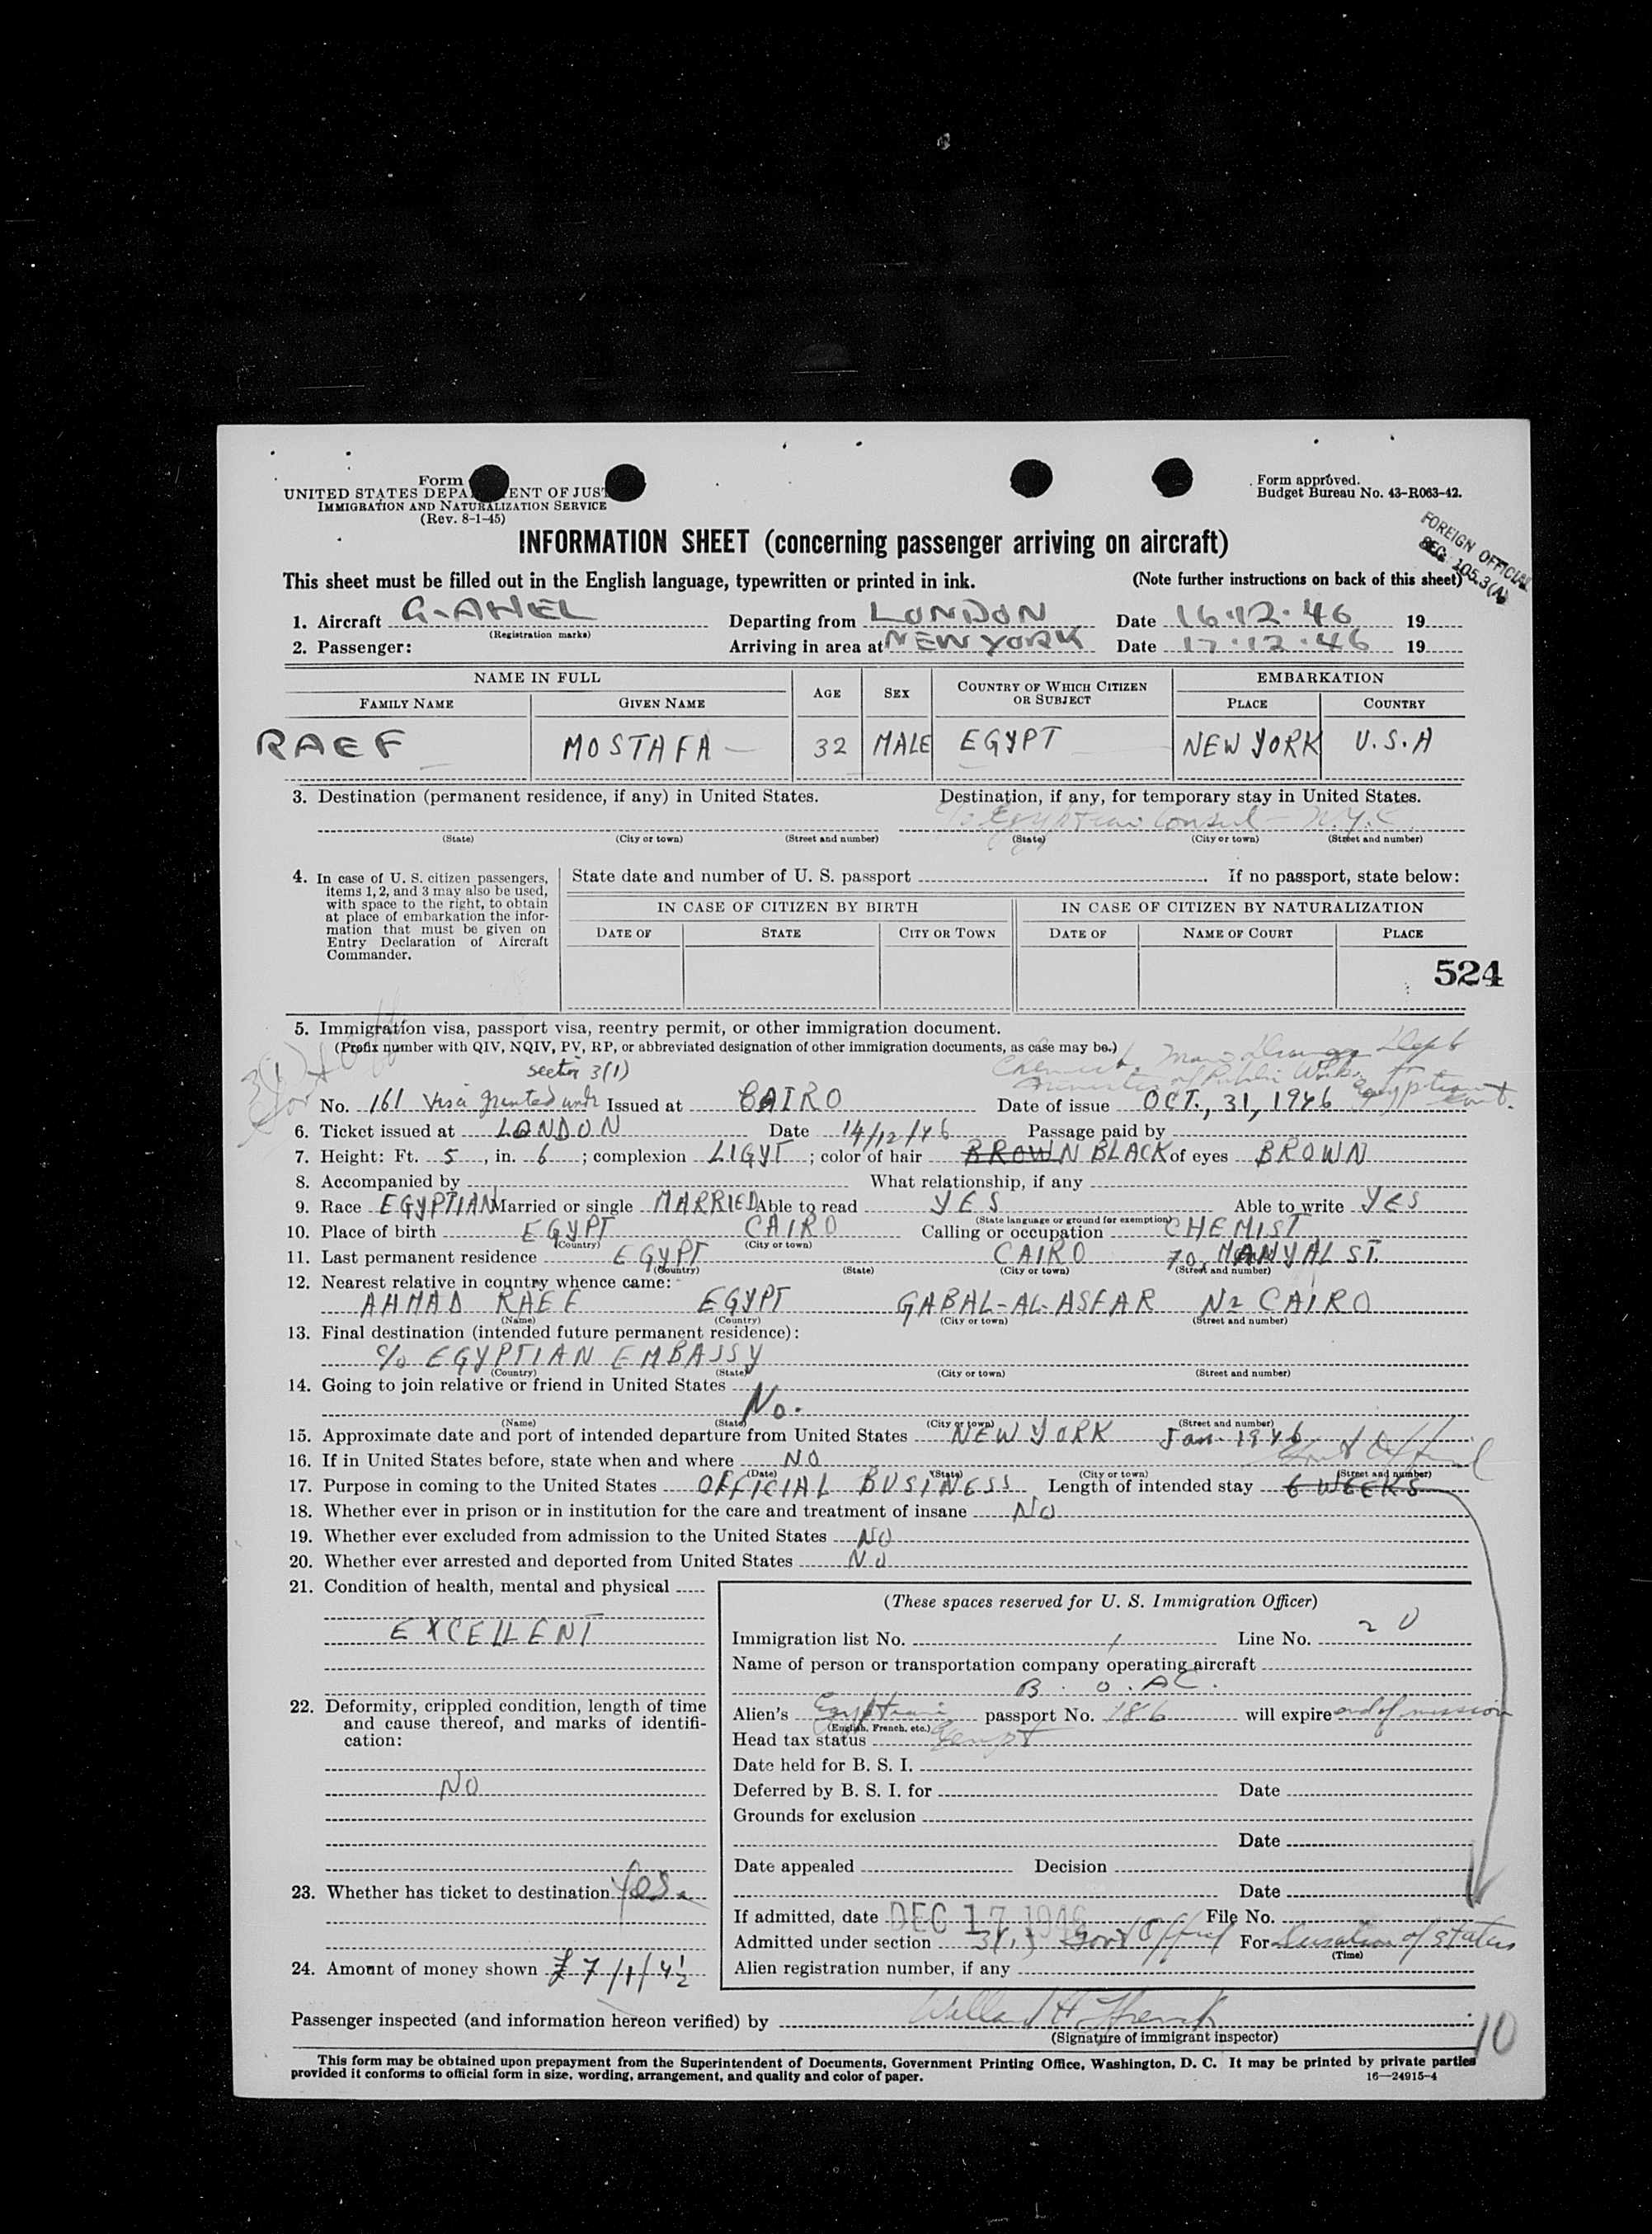 Form
UNITED STATES DEPA ENT OF JUST
IMMIGRATION AND NATURALIZATION SERVICE
(Rev. 8-1-45)
Form approved.
Budget Bureau No. 43-R063-42.
FOREIGN OFFICIAL
SEC. 105.3(A)
INFORMATION SHEET (concerning passenger arriving on aircraft)
This sheet must be filled out in the English language, typewritten or printed in ink. (Note further instructions on back of this sheet)
1. Aircraft G-AHEL Departing from LONDON Date 16.12.46 19
(Registration marks)
2. Passenger: Arriving in area at NEW YORK Date 17.12.46 19
NAME IN FULL AGE SEX COUNTRY OF WHICH CITIZEN OR SUBJECT EMBARKATION
FAMILY NAME GIVEN NAME PLACE COUNTRY
RAEF MOSTAFA 32 MALE EGYPT NEW YORK U.S.A
3. Destination (permanent residence, if any) in United States. Destination, if any, for temporary stay in United States.
c/o Egyptian Consul - N.Y.C.
(State) (City or town) (Street and number) (State) (City or town) (Street and number)
4. In case of U. S. citizen passengers, items 1, 2, and 3 may also be used, with space to the right, to obtain at place of embarkation the information that must be given on Entry Declaration of Aircraft Commander.
State date and number of U. S. passport If no passport, state below:
IN CASE OF CITIZEN BY BIRTH IN CASE OF CITIZEN BY NATURALIZATION
DATE OF STATE CITY OR TOWN DATE OF NAME OF COURT PLACE
524
5. Immigration visa, passport visa, reentry permit, or other immigration document.
(Prefix number with QIV, NQIV, PV, RP, or abbreviated designation of other immigration documents, as case may be.)
Chemist, Dept
Ministry of Public Works for Egyptian Govt.
3(1)
section 3(1)
No. 161 Visa granted under Issued at CAIRO Date of issue OCT., 31, 1946
6. Ticket issued at LONDON Date 14/12/46 Passage paid by
7. Height: Ft. 5, in. 6; complexion LIGYT; color of hair BROWN BLACK of eyes BROWN
8. Accompanied by What relationship, if any
9. Race EGYPTIAN Married or single MARRIED Able to read YES Able to write YES
(State language or ground for exemption)
10. Place of birth EGYPT CAIRO Calling or occupation CHEMIST
(Country) (City or town)
11. Last permanent residence EGYPT CAIRO 70, MANYAL ST.
(Country) (State) (City or town) (Street and number)
12. Nearest relative in country whence came:
AHMAD RAEF EGYPT GABAL-AL-ASFAR Nr CAIRO
(Name) (Country) (City or town) (Street and number)
13. Final destination (intended future permanent residence):
c/o EGYPTIAN EMBASSY
(Country) (State) (City or town) (Street and number)
14. Going to join relative or friend in United States
No.
(Name) (State) (City or town) (Street and number)
15. Approximate date and port of intended departure from United States NEW YORK Jan. 1946
16. If in United States before, state when and where NO
(Date) (State) (City or town) (Street and number)
Govt Official
17. Purpose in coming to the United States OFFICIAL BUSINESS Length of intended stay 6 WEEKS
18. Whether ever in prison or in institution for the care and treatment of insane NO
19. Whether ever excluded from admission to the United States NO
20. Whether ever arrested and deported from United States NO
21. Condition of health, mental and physical
EXCELLENT
22. Deformity, crippled condition, length of time and cause thereof, and marks of identification:
NO
23. Whether has ticket to destination Yes.
24. Amount of money shown £7/1/4½
(These spaces reserved for U. S. Immigration Officer)
Immigration list No. 1 Line No. 20
Name of person or transportation company operating aircraft
B.O.AC.
Alien's Egyptian passport No. 186 will expire end of mission
(English, French, etc.)
Head tax status Exempt
Date held for B. S. I.
Deferred by B. S. I. for Date
Grounds for exclusion
Date
Date appealed Decision
Date
If admitted, date DEC 17 1946 File No.
Admitted under section 3(1) Govt Official For Duration of status
(Time)
Alien registration number, if any
Passenger inspected (and information hereon verified) by
(Signature of immigrant inspector)
10
This form may be obtained upon prepayment from the Superintendent of Documents, Government Printing Office, Washington, D. C. It may be printed by private parties
provided it conforms to official form in size, wording, arrangement, and quality and color of paper. 16—24915-4